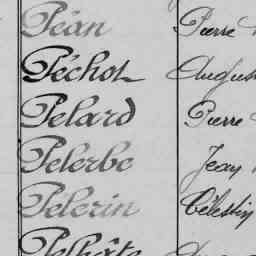 Péan Pierre
Péchot Augus
Pelard Pierre
Pelerbe Jean
Pelerin Célestin
Pelhâte